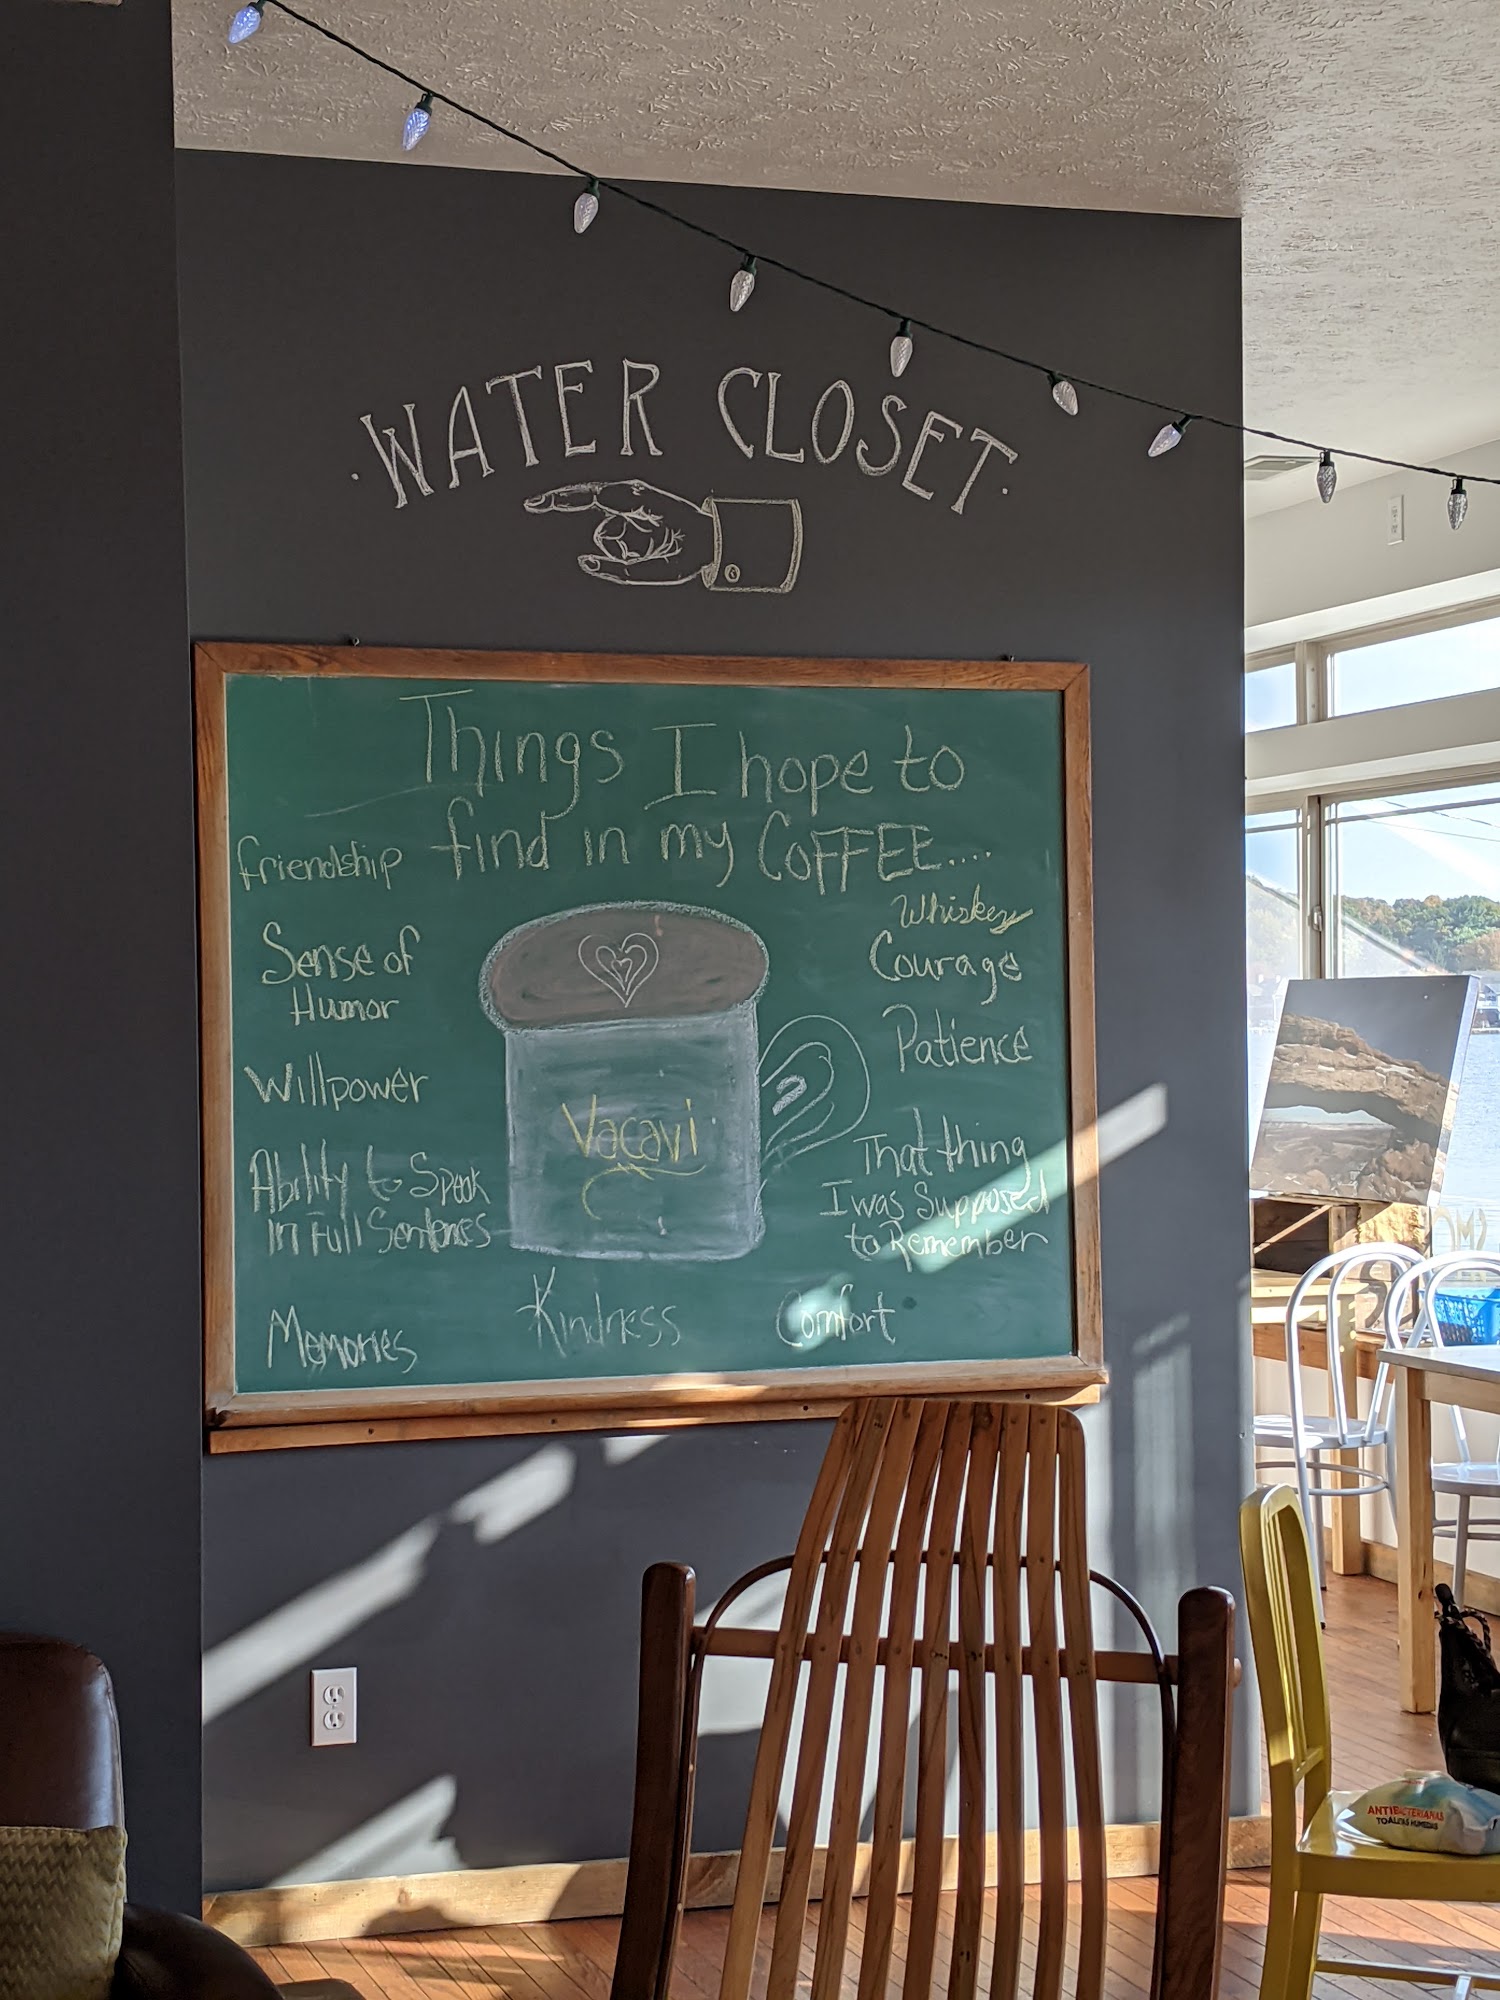 ·WATER CLOSET·
Things I hope to
find in my COFFEE....
friendship
Sense of
Humor
Willpower
Ability to Speak
In Full Sentences
Memories
Vacavi
Kindness
Comfort
Whiskey
Courage
Patience
That thing
I was Supposed
to Remember
ANTIBACTERIANAS
TOALITAS HUMEDAS